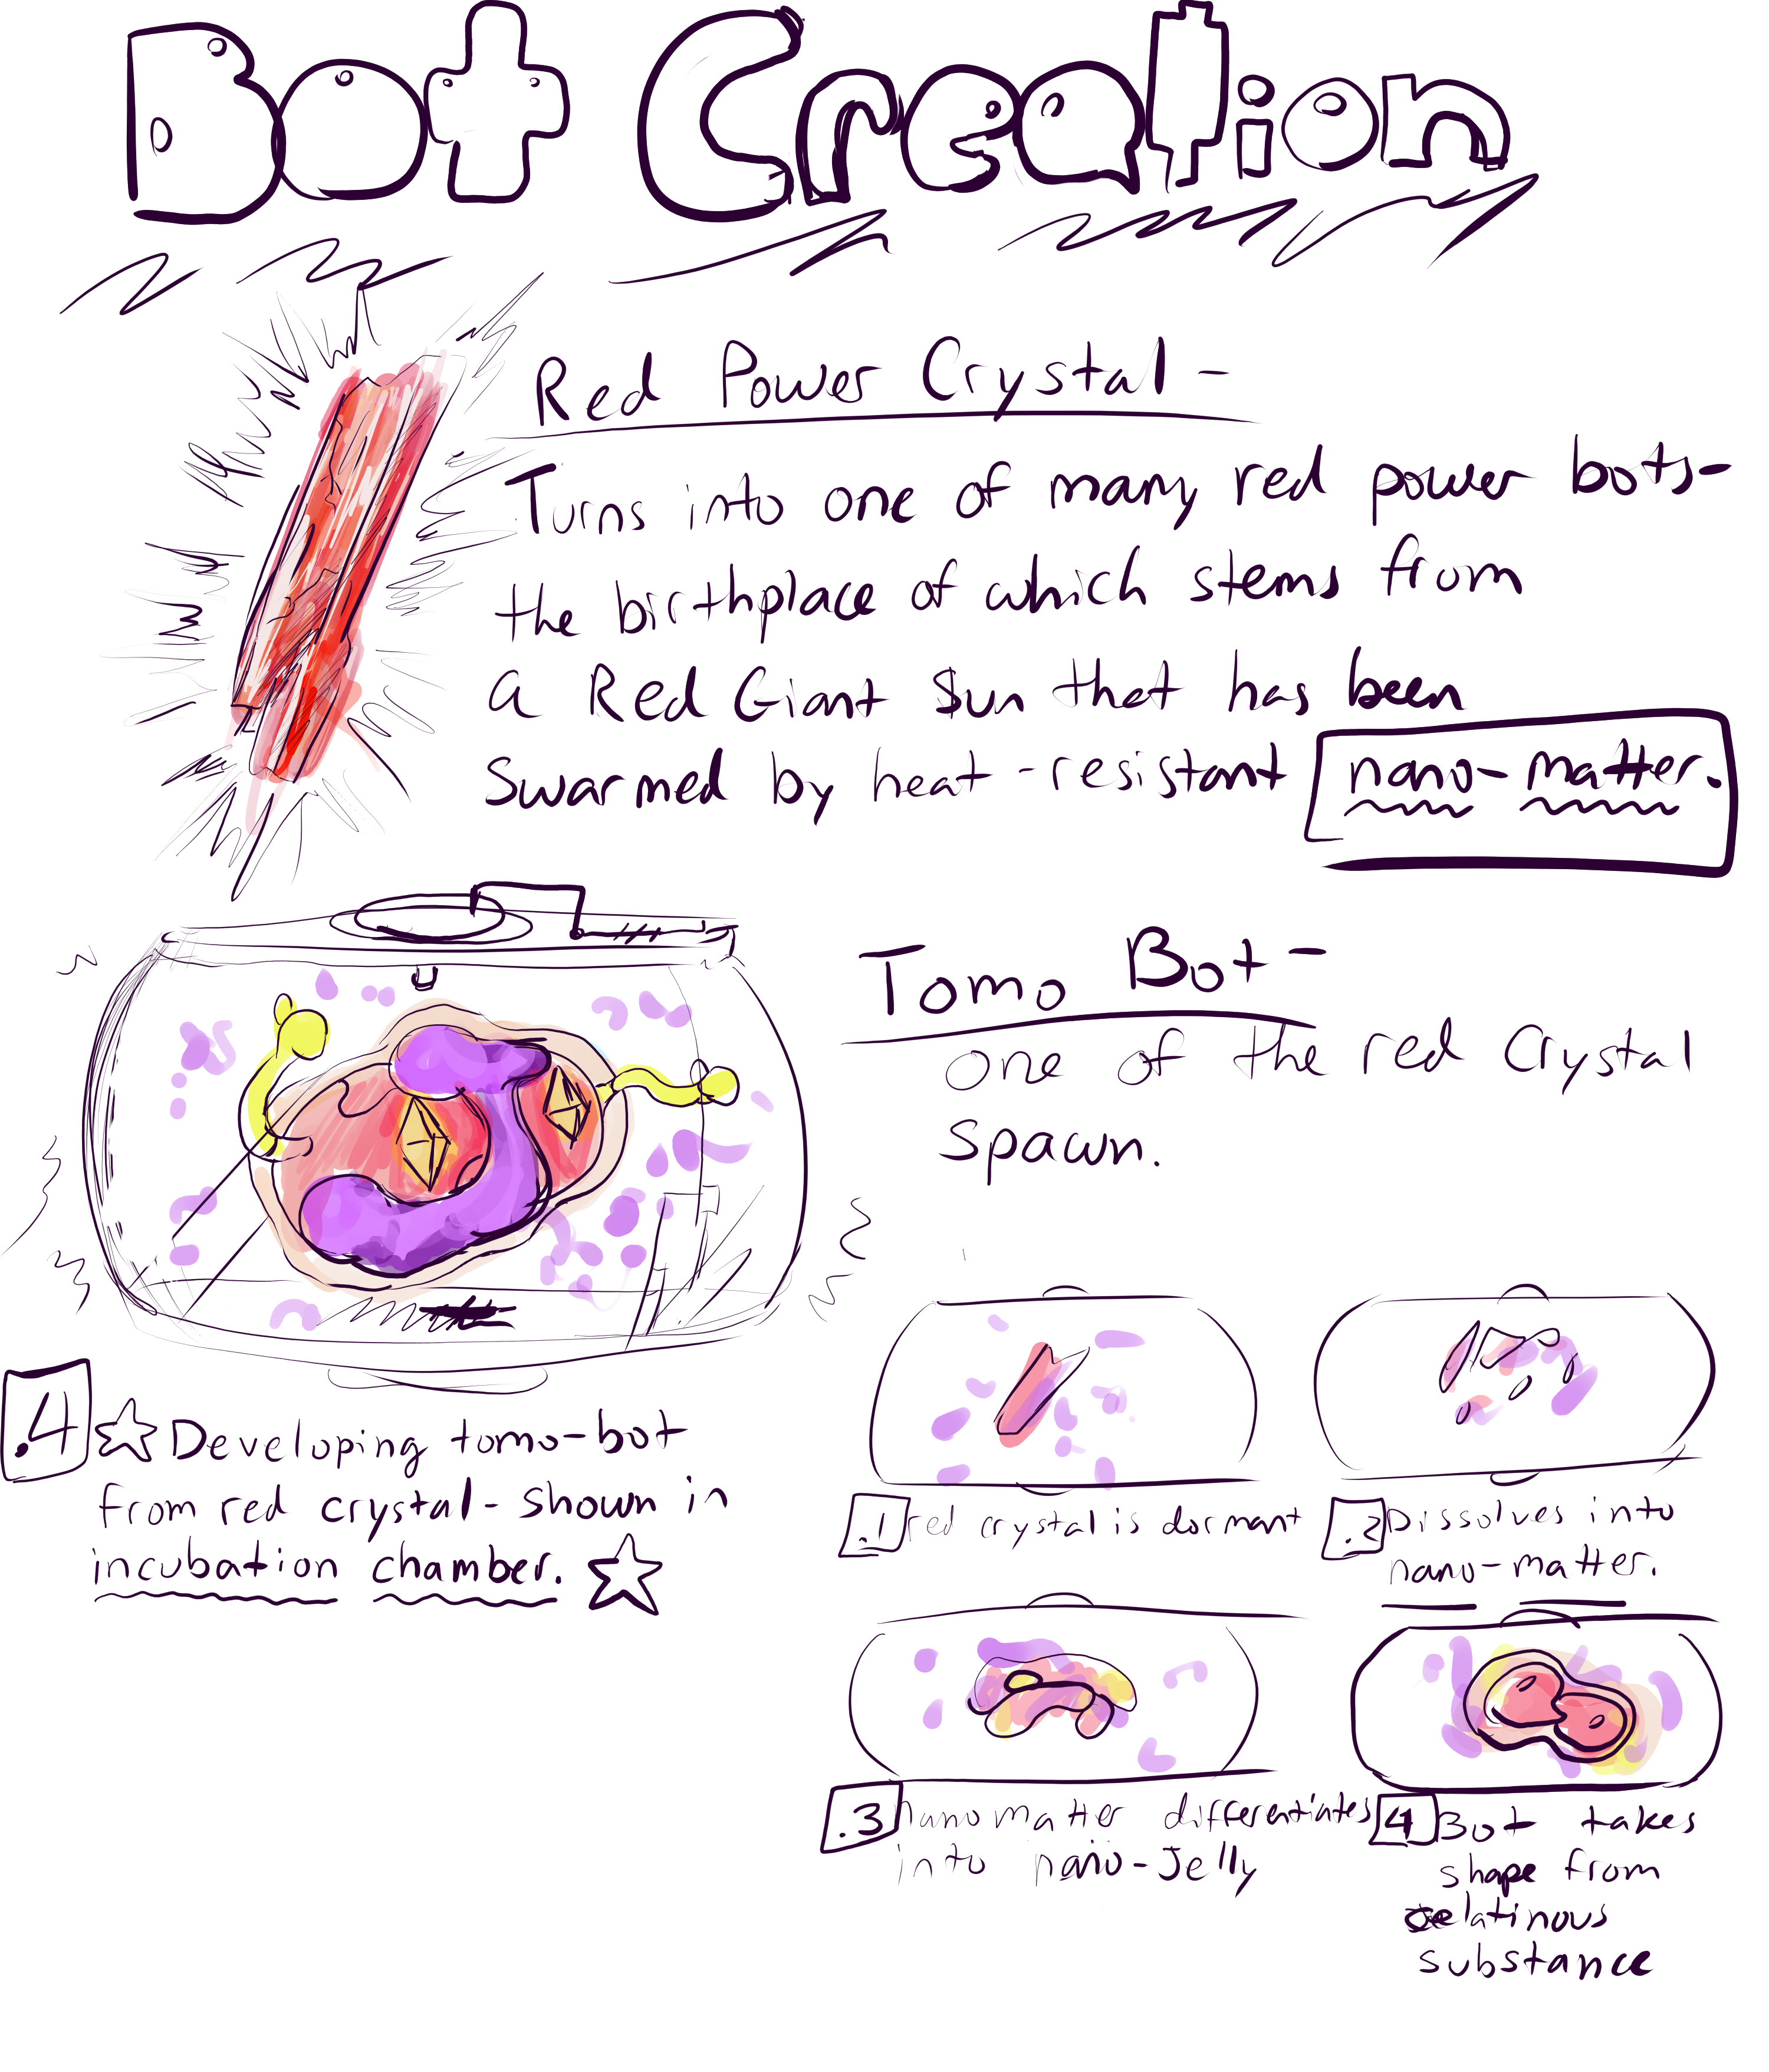 Bot Creation
Red Power Crystal -
Turns into one of many red power bots-
the birthplace of which stems from
a Red Giant Sun that has been
swarmed by heat-resistant nano-matter.
Tomo Bot-
one of the red Crystal
spawn.
.4 Developing tomo-bot
from red crystal- shown in
incubation chamber.
.1 red crystal is dormant
.2 Dissolves into
nano-matter.
.3 nano matter differentiates
into nano-Jelly
4 Bot takes
shape from
Gelatinous
substance